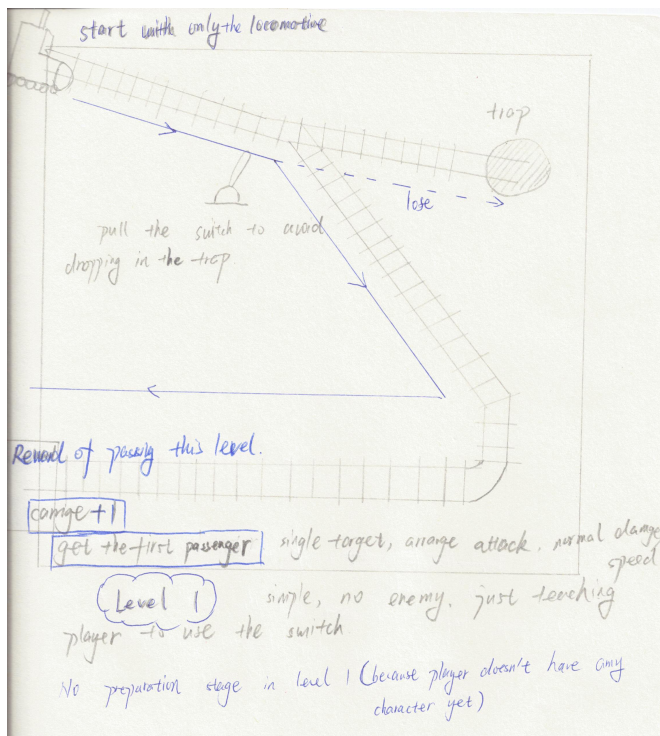 start with only the locomotive
trap
lose
pull the switch to avoid
dropping in the trap.
Reward of passing this level.
carrige +1
get the first passenger single target, arrange attack, normal damage
speed
Level 1 simple, no enemy. just teaching
player to use the switch
No preparation stage in level 1 (because player doesn't have any
character yet)